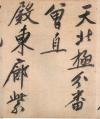 天北極分番
曾直
殿東廊紫